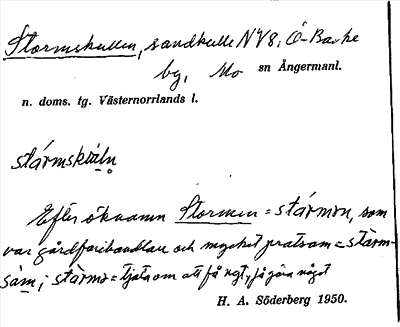 Stormskullen, sandkulle NV8. Ö-Backe
by, Mo sn Ångermanl.
n. doms. tg. Västernorrlands l.
stårmskuln
Efter öknamn Stormen = stårmən, som
var gårdfarihandlare och mycket pratsam = stårm-
sam; stårma = tjata om att få ngt, få göra något
H. A. Söderberg 1950.